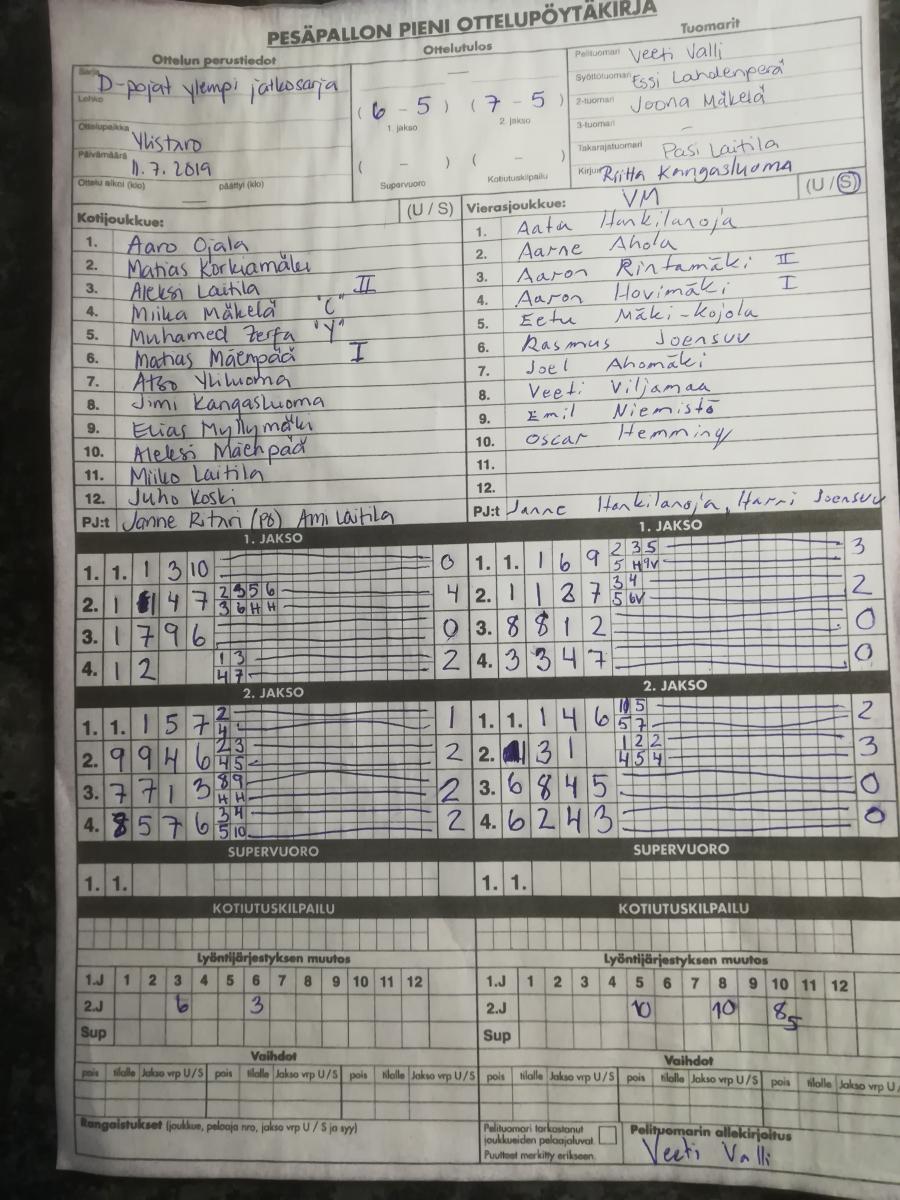 PESÄPALLON PIENI OTTELUPÖYTÄKIRJA
Ottelun perustiedot
Sarja D-pojat ylempi jatkosarja
Lohko
Ottelupaikka Ylistaro
Päivämäärä 11.7.2019
Ottelu alkoi (klo) — päättyi (klo)
Ottelutulos
—
( 6 - 5 ) ( 7 - 5 )
1. jakso 2. jakso
( - ) ( - )
Supervuoro Kotiutuskilpailu
Tuomarit
Pelituomari Veeti Valli
Syöttötuomari Essi Lahdenperä
2-tuomari Joona Mäkelä
3-tuomari –
Takarajatuomari Pasi Laitila
Kirjuri Riitta Kangasluoma
Kotijoukkue: (U / S)
1. Aaro Ojala
2. Matias Korkiamäki
3. Aleksi Laitila II
4. Miika Mäkelä "C"
5. Muhamed Zerfa "Y"
6. Matias Mäenpää I
7. Atso Yliluoma
8. Jimi Kangasluoma
9. Elias Myllymäki
10. Aleksi Mäenpää
11. Miiko Laitila
12. Juho Koski
PJ:t Janne Ritari (PJ) Ami Laitila
Vierasjoukkue: VM (U / S)
1. Aatu Hankilanoja
2. Aarne Ahola
3. Aaron Rintamäki II
4. Aaron Hovimäki I
5. Eetu Mäki-Kojola
6. Rasmus Joensuu
7. Joel Ahomäki
8. Veeti Viljamaa
9. Emil Niemistö
10. Oscar Hemming
11.
12.
PJ:t Janne Hankilanoja, Harri Joensuu
1. JAKSO
1. 1. 1 3 10 0
2. 1 1 4 7 2 3 5 6 4
3 6 H H
3. 1 7 9 6 0
4. 1 2 1 3 2
4 7
2. JAKSO
1. 1. 1 5 7 2 1
4
2. 9 9 4 6 2 3 2
4 5
3. 7 7 1 3 8 9 2
H H
4. 8 5 7 6 3 4 2
5 10
SUPERVUORO
1. 1.
KOTIUTUSKILPAILU
1. JAKSO
1. 1. 1 6 9 2 3 5 3
5 H 9V
2. 1 1 8 7 3 4 2
5 6V
3. 8 8 1 2 0
4. 3 3 4 7 0
2. JAKSO
1. 1. 1 4 6 10 5 2
5 7
2. 1 3 1 1 2 2 3
4 5 4
3. 6 8 4 5 0
4. 6 2 4 3 0
SUPERVUORO
1. 1.
KOTIUTUSKILPAILU
Lyöntijärjestyksen muutos
1.J 1 2 3 4 5 6 7 8 9 10 11 12
2.J 6 3
Sup
Vaihdot
pois tilalle Jakso vrp U / S pois tilalle Jakso vrp U / S pois tilalle
Lyöntijärjestyksen muutos
1.J 1 2 3 4 5 6 7 8 9 10 11 12
2.J 10 10 8 5
Sup
Vaihdot
pois tilalle Jakso vrp U / S pois tilalle Jakso vrp U / S pois tilalle Jakso vrp U /
Rangaistukset (joukkue, pelaaja nro, jakso vrp U / S ja syy)
Pelituomari tarkastanut
joukkueiden pelaajaluvat
Puutteet merkitty erikseen.
Pelituomarin allekirjoitus
Veeti Valli